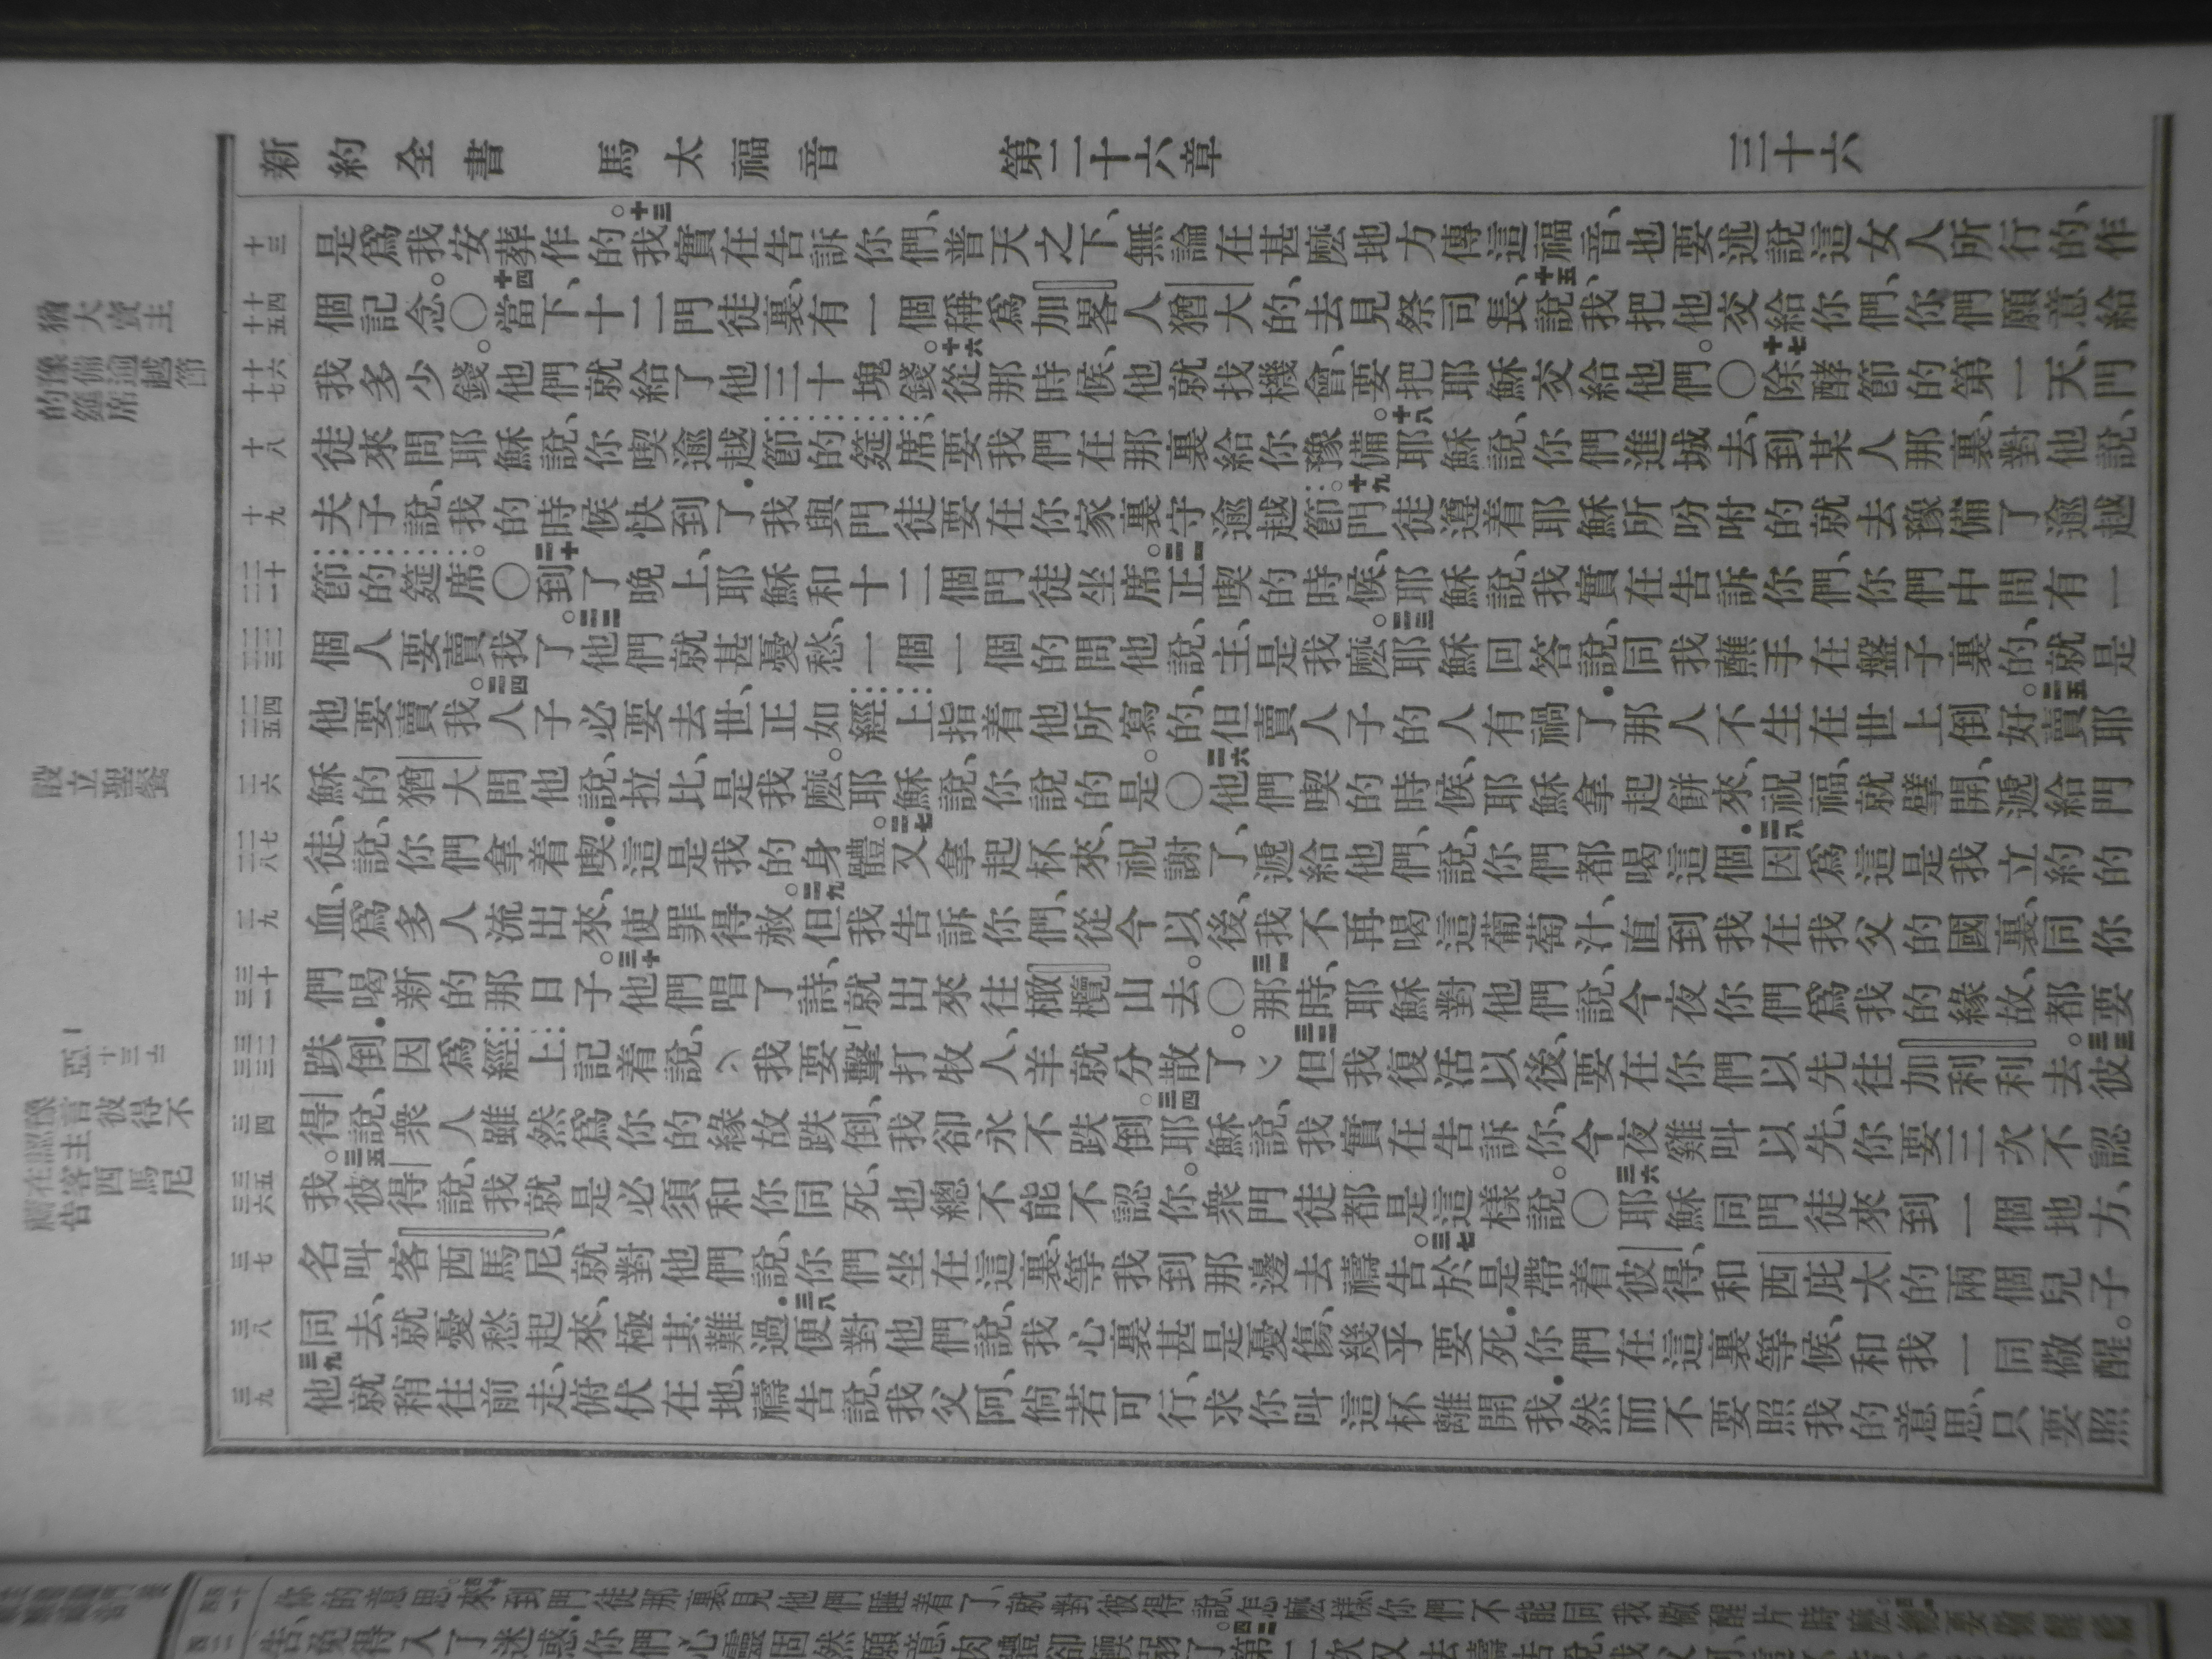 新約全書 馬太福音 第二十六章 三十六
十三
是爲我安葬作的。十三我實在告訴你們、普天之下、無論在甚麽地方傳這福音、也要述說這女人所行的、作
十四 十五
個記念。〇十四當下、十二門徒裏、有一個稱爲加畧人猶大的、去見祭司長、十五說、我把他交給你們、你們願意給
十六 十七
我多少錢。他們就給了他三十塊錢。十六從那時候、他就找機會、要把耶穌交給他們。〇十七除酵節的第一天、門
十八
徒來問耶穌說、你喫逾越節的筵席、要我們在那裏給你豫備。十八耶穌說、你們進城去、到某人那裏、對他說、
十九
夫子說、我的時候快到了．我與門徒要在你家裏守逾越節。十九門徒遵着耶穌所吩咐的就去豫備了逾越
二十 二一
節的筵席。〇二十到了晚上、耶穌和十二個門徒坐席。二一正喫的時候、耶穌說、我實在告訴你們、你們中間有一
二二 二三
個人要賣我了。二二他們就甚憂愁、一個一個的問他說、主、是我麽。二三耶穌回答說、同我蘸手在盤子裏的、就是
二四 二五
他要賣我。二四人子必要去世、正如經上指着他所寫的、但賣人子的人有禍了．那人不生在世上倒好。二五賣耶
二六
穌的猶大問他說、拉比、是我麽。耶穌說、你說的是。〇二六他們喫的時候、耶穌拿起餅來、祝福、就擘開、遞給門
二七 二八
徒、說、你們拿着喫．這是我的身體。二七又拿起杯來、祝謝了、遞給他們、說、你們都喝這個．二八因爲這是我立約的
二九
血、爲多人流出來、使罪得赦。二九但我告訴你們、從今以後、我不再喝這葡萄汁、直到我在我父的國裏、同你
三十 三一
們喝新的那日子。三十他們唱了詩、就出來往橄欖山去。〇三一那時、耶穌對他們說、今夜你們爲我的緣故、都要
三二 三三
跌倒．因爲經上記着說、我要擊打牧人、羊就分散了。三二但我復活以後、要在你們以先往加利利去。三三彼
三四
得說、衆人雖然爲你的緣故跌倒、我卻永不跌倒。三四耶穌說、我實在告訴你、今夜雞叫以先、你要三次不認
三五 三六
我。三五彼得說、我就是必須和你同死、也總不能不認你。衆門徒都是這樣說。〇三六耶穌同門徒來到一個地方、
三七
名叫客西馬尼、就對他們說、你們坐在這裏、等我到那邊去禱告。三七於是帶着彼得、和西庇太的兩個兒子
三八
同去、就憂愁起來、極其難過．三八便對他們說、我心裏甚是憂傷、幾乎要死．你們在這裏等候、和我一同儆醒。
三九
三九他就稍往前走、俯伏在地、禱告說、我父阿、倘若可行、求你叫這杯離開我．然而不要照我的意思、只要照
猶大賣主
豫備逾越節的筵席
設立聖餐
亞十三
豫言彼得不
在客西馬尼
你的意思。來到門徒那裏、見他們睡着了、就對彼得說、怎麽樣、你們不能同我儆醒片時麽。
告、免得入了迷惑．你們心靈固然願意、肉體卻輭弱了。第二次又去禱告說、我父